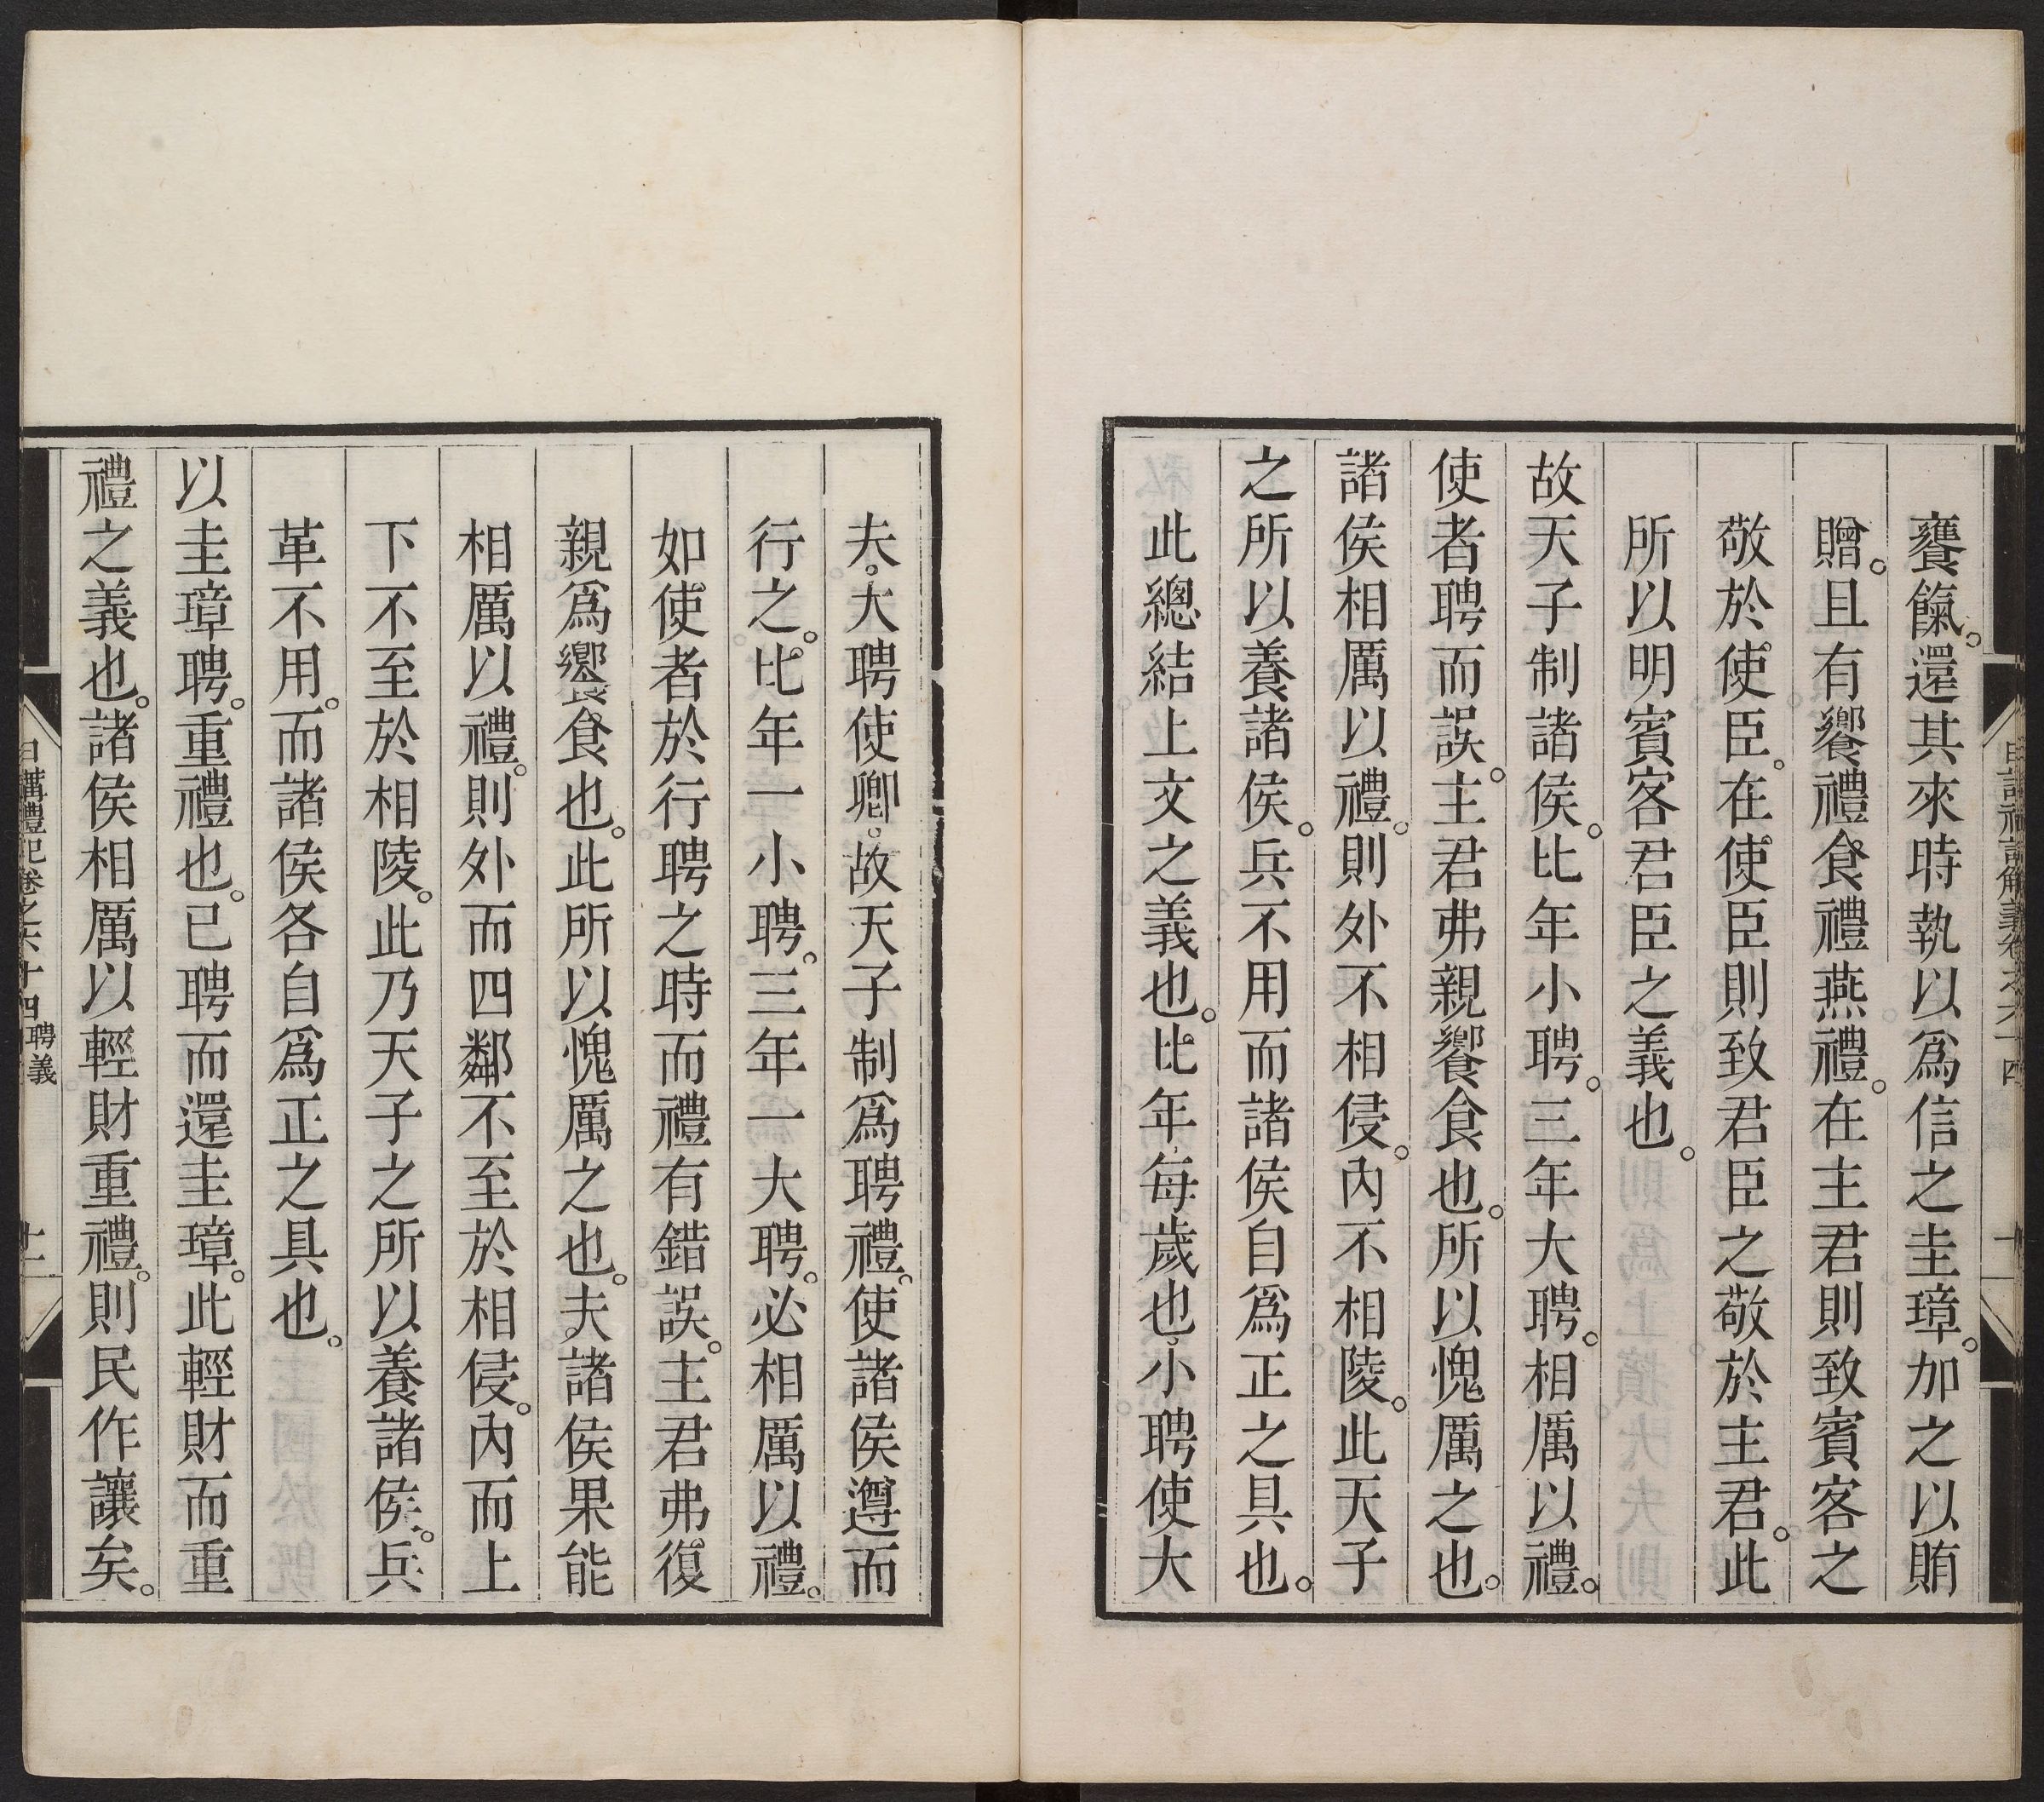 饔餼。還其來時執以爲信之圭璋。加之以賄
贈。且有饗禮食禮燕禮。在主君則致賓客之
敬於使臣。在使臣則致君臣之敬於主君。此
所以明賓客君臣之義也。
故天子制諸侯。比年小聘。三年大聘。相厲以禮。
使者聘而誤。主君弗親饗食也。所以愧厲之也。
諸侯相厲以禮。則外不相侵。內不相陵。此天子
之所以養諸侯。兵不用而諸侯自爲正之具也。
此總結上文之義也。比年、每歲也、小聘使大
夫。大聘使卿。故天子制爲聘禮。使諸侯遵而
行之。比年一小聘。三年一大聘。必相厲以禮。
如使者於行聘之時而禮有錯誤。主君弗復
親爲饗食也。此所以愧厲之也。夫諸侯果能
相厲以禮。則外而四鄰不至於相侵。內而上
下不至於相陵。此乃天子之所以養諸侯。兵
革不用。而諸侯各自爲正之具也。
以圭璋聘。重禮也。已聘而還圭璋。此輕財而重
禮之義也。諸侯相厲以輕財重禮。則民作讓矣。
日講禮記卷之六十四 聘義
十二